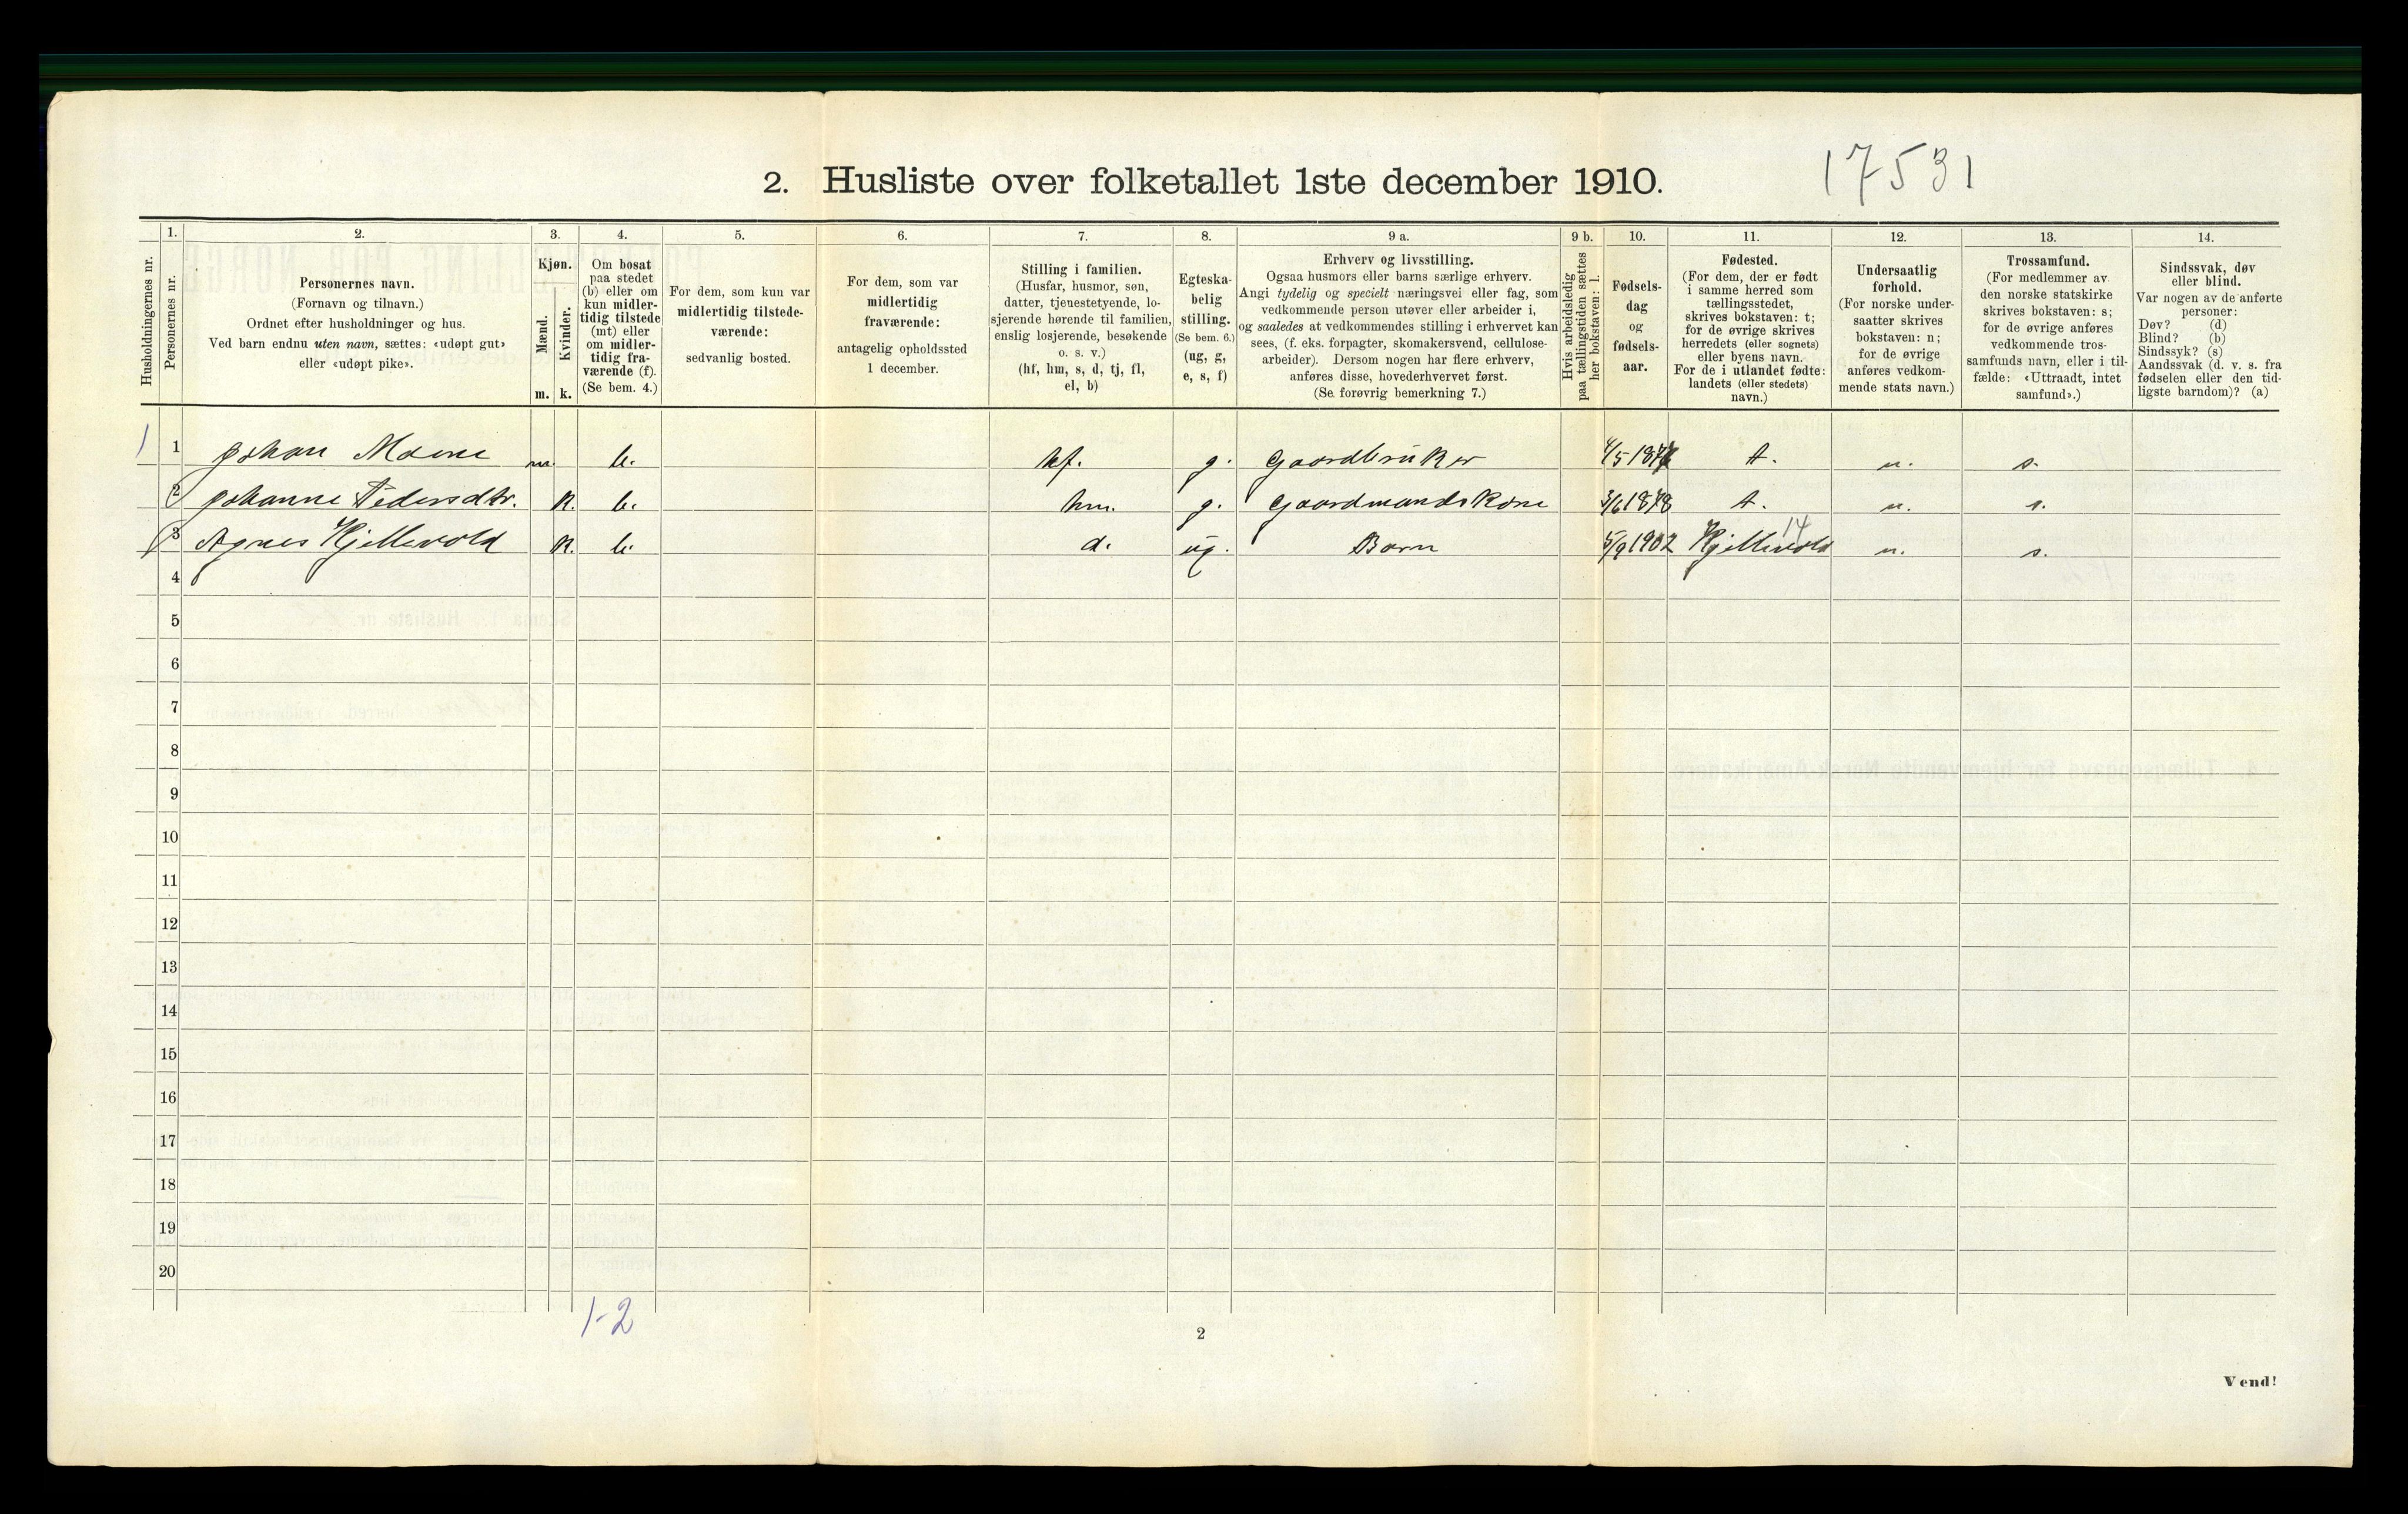 2. Husliste over folketallet 1ste december 1910.
17531
Husholdningernes nr.
1.
Personernes nr.
2.
Personernes navn.
(Fornavn og tilnavn.)
Ordnet efter husholdninger og hus.
Ved barn endnu uten navn, sættes: «udøpt gut»
eller «udøpt pike».
3.
Kjøn.
Mænd.
m.
Kvinder.
k.
4.
Om bosat
paa stedet
(b) eller om
kun midler-
tidig tilstede
(mt) eller
om midler-
tidig fra-
værende (f).
(Se bem. 4.)
5.
For dem, som kun var
midlertidig tilstede-
værende:
sedvanlig bosted.
6.
For dem, som var
midlertidig
fraværende:
antagelig opholdssted
1 december.
7.
Stilling i familien.
(Husfar, husmor, søn,
datter, tjenestetyende, lo-
sjerende hørende til familien,
enslig losjerende, besøkende
o. s. v.)
(hf, hm, s, d, tj, fl,
el, b)
8.
Egteska-
belig
stilling.
(Se bem. 6.)
(ug, g,
e, s, f)
9 a.
Erhverv og livsstilling.
Ogsaa husmors eller barns særlige erhverv.
Angi tydelig og specielt næringsvei eller fag, som
vedkommende person utøver eller arbeider i,
og saaledes at vedkommendes stilling i erhvervet kan
sees, (f. eks. forpagter, skomakersvend, cellulose-
arbeider). Dersom nogen har flere erhverv,
anføres disse, hovederhvervet først.
(Se forøvrig bemerkning 7.)
9 b.
Hvis arbeidsledig
paa tællingstiden sættes
her bokstaven: l.
10.
Fødsels-
dag
og
fødsels-
aar.
11.
Fødested.
(For dem, der er født
i samme herred som
tællingsstedet,
skrives bokstaven: t;
for de øvrige skrives
herredets (eller sognets)
eller byens navn.
For de i utlandet fødte:
landets (eller stedets)
navn.)
12.
Undersaatlig
forhold.
(For norske under-
saatter skrives
bokstaven: n;
for de øvrige
anføres vedkom-
mende stats navn.)
13.
Trossamfund.
(For medlemmer av
den norske statskirke
skrives bokstaven: s;
for de øvrige anføres
vedkommende tros-
samfunds navn, eller i til-
fælde: «Uttraadt, intet
samfund».)
14.
Sindssvak, døv
eller blind.
Var nogen av de anførte
personer:
Døv? (d)
Blind? (b)
Sindssyk? (s)
Aandssvak (d. v. s. fra
fødselen eller den tid-
ligste barndom)? (a)
1 1 Johan Moene m. b. hf. g. Gaardbruker 4/5 t. n. s.
2 Johanne Pedersdtr. k. b. hm. g. Gaardmandskone 3/6 1878 t. n. s.
3 Agnes Kjellevold k. b. d. ug. Barn 5/9 1902 Kjellevold 14 n. s.
4
5
6
7
8
9
10
11
12
13
14
15
16
17
18
19
20
1-2
2
Vend!